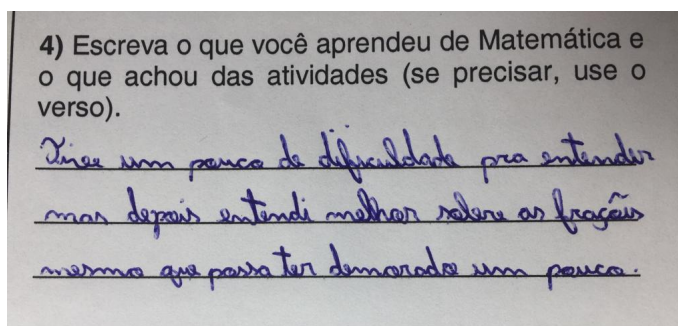 4) Escreva o que você aprendeu de Matemática e
o que achou das atividades (se precisar, use o
verso).
Tive um pouco de dificuldade pra entender
mas depois entendi melhor sobre as frações
mesmo que possa ter demorado um pouco.